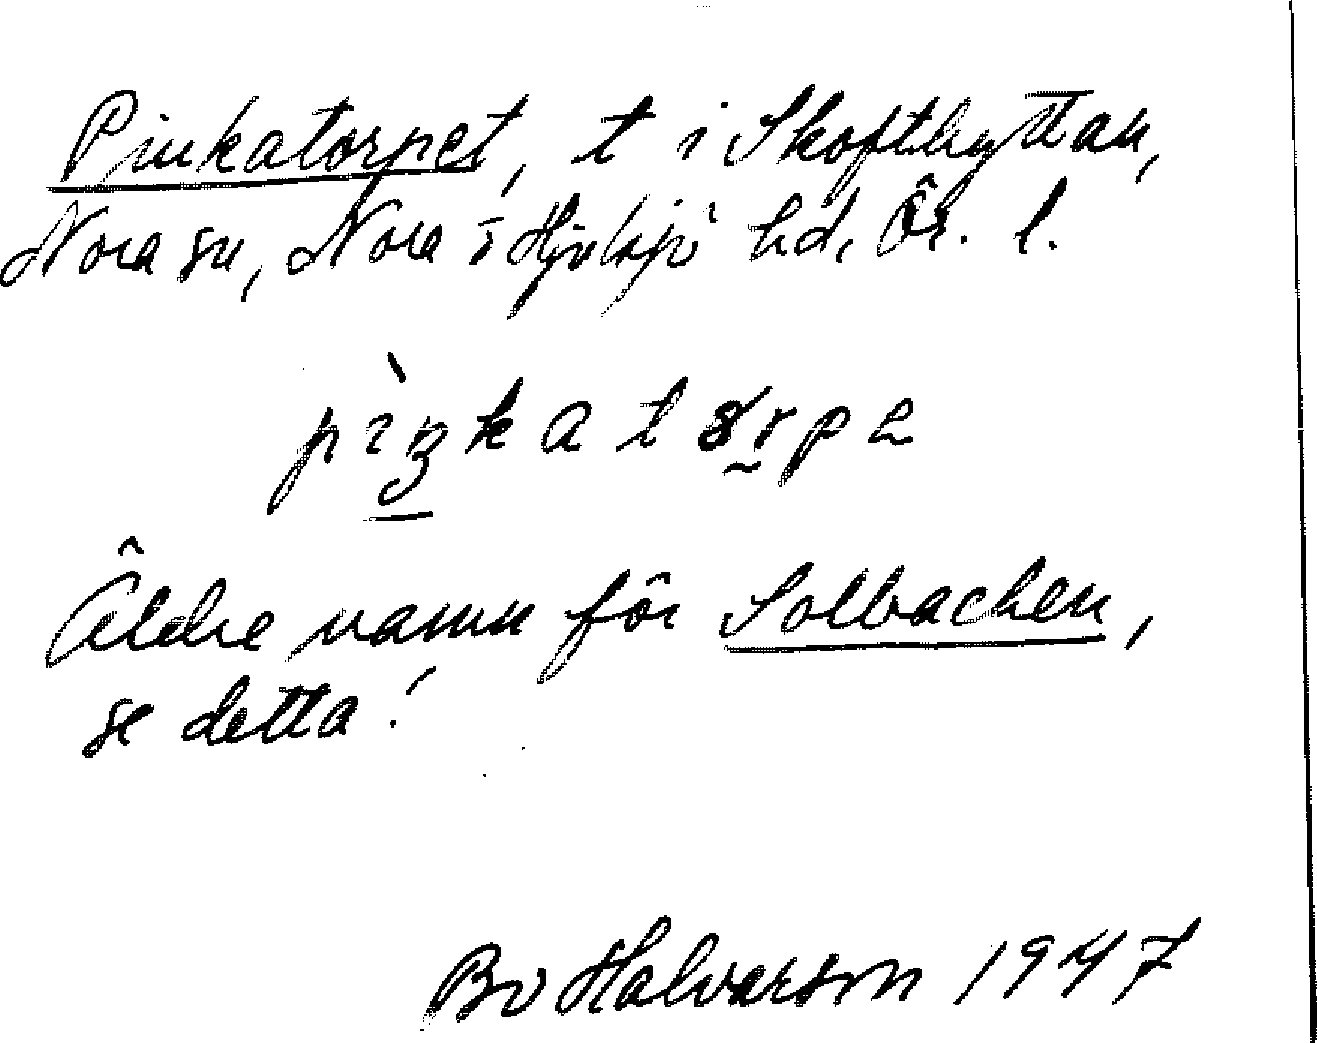 Pinkatorpet, t i Skofthyttan,
Nora sn, Nora o Hjulsjö hd, Ör. l.
Äldre namn för Solbacken,
se detta!
Bo Halvarson 1947